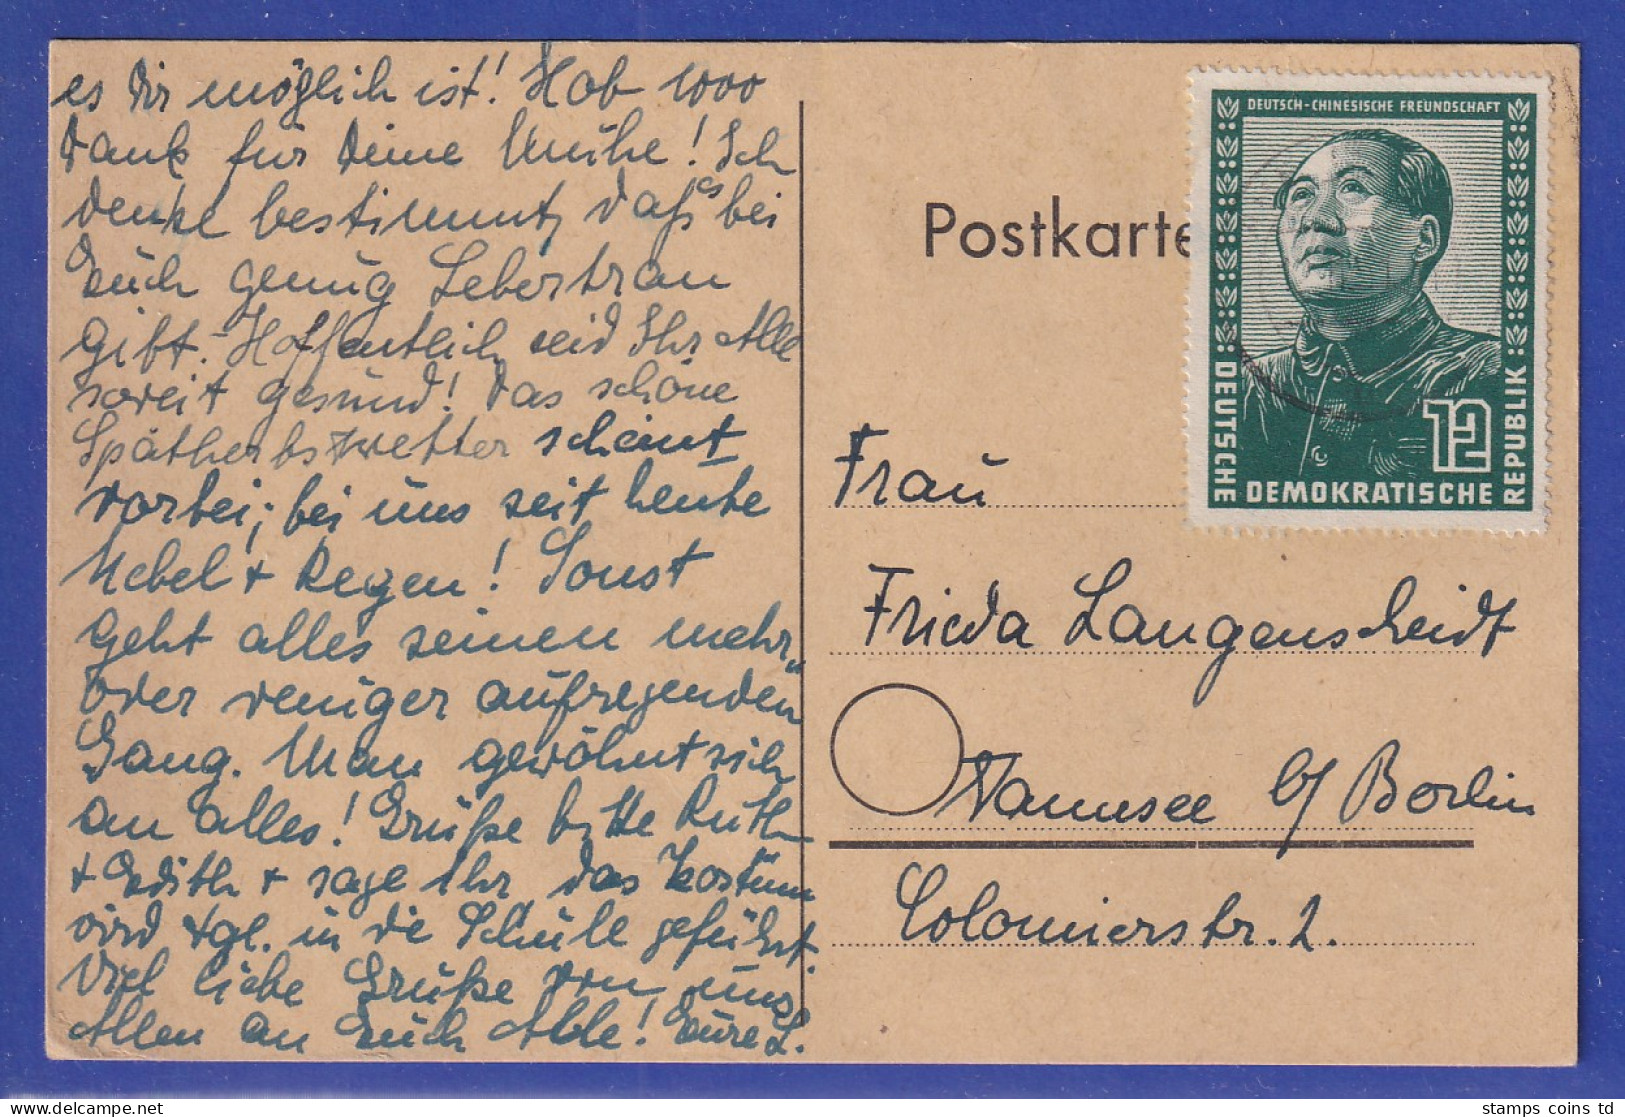 es Dir möglich ist! Hab 1000
Dank für Deine Mühe! Ich
denke bestimmt, daß es bei
Euch genug Lebertran
gibt. Hoffentlich seid Ihr Alle
soweit gesund! Das schöne
Spätherbstwetter scheint
vorbei; bei uns seit heute
Nebel + Regen! Sonst
geht alles seinen mehr
oder weniger aufregenden
Gang. Man gewöhnt sich
an alles! Grüße bitte Ruth
+ Edith + sage Ihr, das Kostüm
wird tgl. in die Schule geführt.
Viel liebe Grüße von uns
Allen an Euch Alle! Eure L.
Postkarte
DEUTSCH-CHINESISCHE FREUNDSCHAFT
12
DEUTSCHE DEMOKRATISCHE REPUBLIK
Frau
Frieda Langenscheidt
Wannsee b/ Berlin
Colomierstr. 2.
stamps coins td